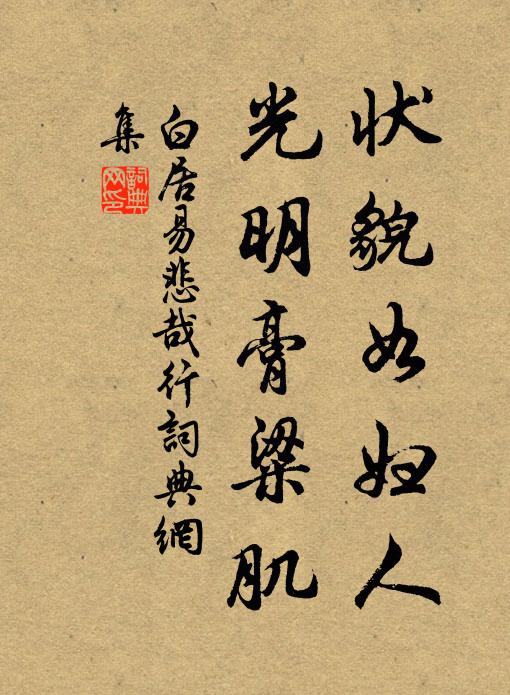 状貌如妇人
光明膏粱肌
白居易悲哉行詞典網
集
詞典
网印